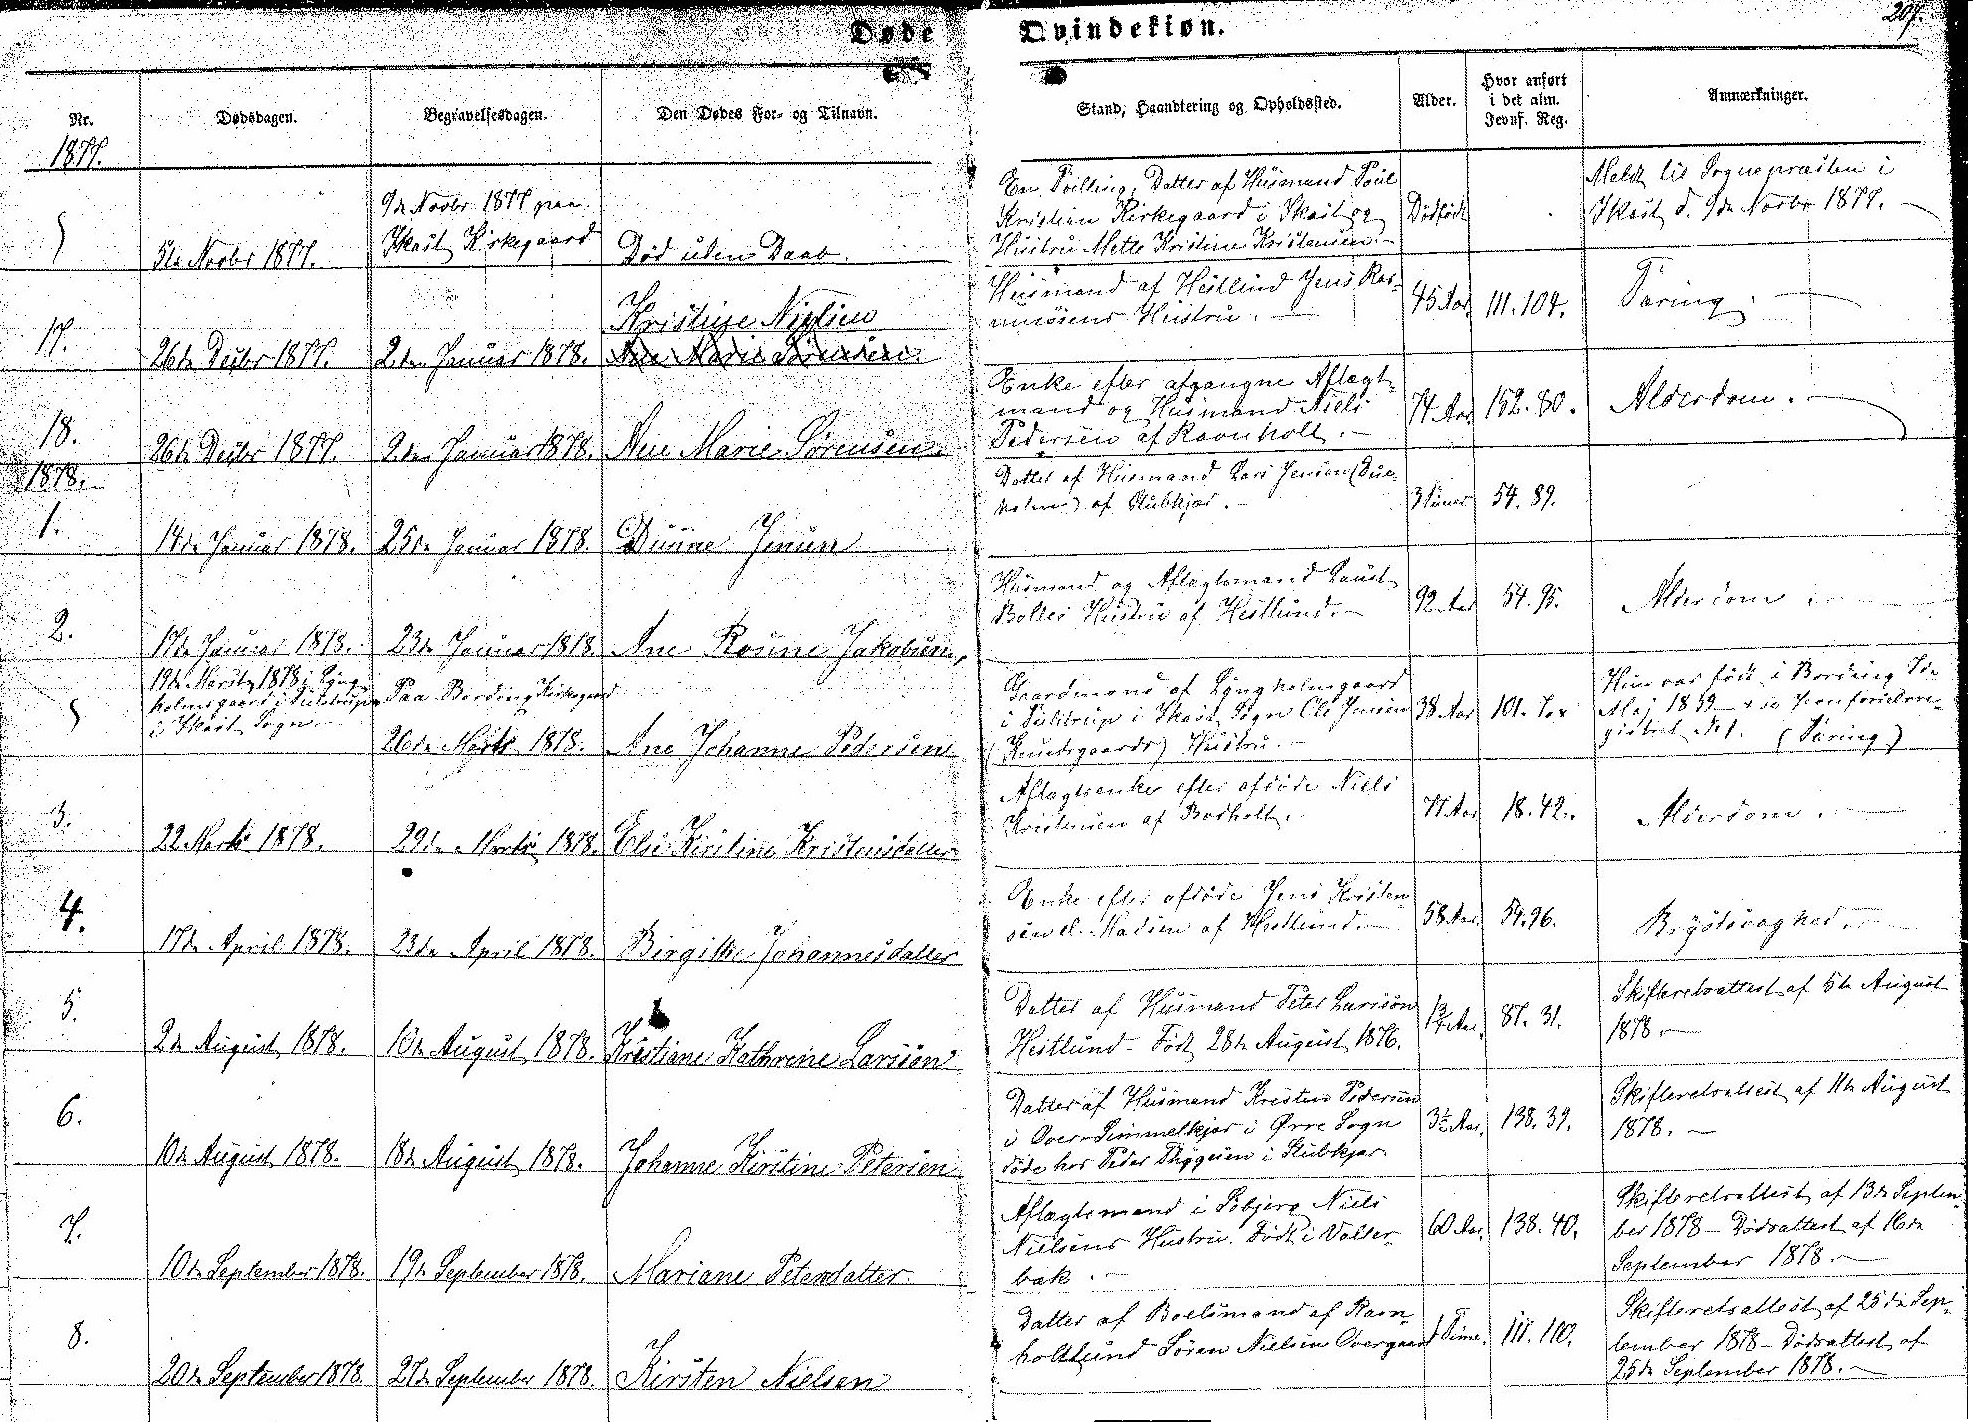 Døde Qvindekiøn.
207.
Nr.
Dødsdagen.
Begravelsesdagen.
Den Dødes For- og Tilnavn.
Stand, Haandtering og Opholdssted.
Alder.
Hvor anført
i det alm.
Jevnf. Reg.
Anmærkninger.
1877.
5te Novbr 1877.
9de Novbr. 1877 paa
Ikast Kirkegaard
Død uden Daab.
En Tvilling, Datter af Husmand Poul
Kristian Kirkegaard i Ikast og
Hustru Mette Kristine Kristensen.
Dødfødt
Meldt til Sognepræsten i
Ikast d. 9de Novbr 1877.
17.
26de Decbr 1877.
2den Januar 1878.
Kristine Nielsen
Ane Marie Sørensen
Husmand af Hestlund Jens Ras-
musens Hustru.
45 Aar
111. 104.
Tæring.
18.
26de Decbr 1877.
2den Januar 1878.
Ane Marie Sørensen
Enke efter afgangne Aftægt-
mand og Husmand Niels
Pedersen af Ravnholt.
77 Aar
152. 80.
Alderdom.
1878.
1.
14de Januar 1878.
25de Januar 1878.
Jensen
Datter af Husmand Lars Jensen (Due-
holm) af Stubkjær.
3 Timer
54. 89.
2.
17de Januar 1878.
23de Januar 1878.
Ane Jakobsen,
Husmand og Aftægtsmand Laust
Bolles Hustru af Hestlund.
92 Aar
54. 95.
Alderdom.
19de Marts 1878 i Lyng-
holmgaard i Tulstrup
i Ikast Sogn.
Paa Bording Kirkegaard
26de Marts 1878.
Ane Johanne Pedersen
Gaardmand af Lyngholmgaard
i Tulstrup i Ikast Sogn Ole Jensen
(Knudsgaards) Hustru.
38 Aar
101.
Hun var født i Bording
Maj 18
gistret Nr 1. (Tæring)
3.
22 Marts 1878.
29de Marts 1878.
Else Kirstine Kristensdatter
Aftægtsenke efter afdøde Niels
Kristensen af Bodholt.
77 Aar
18. 42.
Alderdom.
4.
17de April 1878.
23de April 1878.
Birgitte Johannesdatter
Enke efter afdøde Jens Kristen-
sen el. Madsen af Hestlund.
58 Aar
54. 96.
Brystsvaghed.
5.
2de August 1878.
10de August 1878.
Kristiane Kathrine Larsen
Datter af Husmand Peter Larsen
Hestlund. Født 28de August 1876.
1¾ Aar.
87. 31.
Skifteretsattest af 5te August
1878.
6.
10de August 1878.
18de August 1878.
Johanne Kirstine Petersen
Datter af Husmand Kresten Pedersen
i Over-Simmelkjær i Ørre Sogn
døde hos Peder Thygesen i Stubkjær.
3½ Aar.
138. 39.
Skifteretsattest af 11te August
1878.
7.
10de September 1878.
19de September 1878.
Mariane Petersdatter
Aftægtsmand i Sebjerg Niels
Nielsens Hustru. Født i Valler-
bæk.
60 Aar.
138. 40.
Skifteretsattest af 13de Septem-
ber 1878 – Dødsattest af 16de
September 1878.
8.
20de September 1878.
27de September 1878.
Kirsten Nielsen
Datter af Boelsmand af Ravn-
holtlund Søren Nielsen Overgaard
1 Time.
111. 110.
Skifteretsattest af 25de Sep-
tember 1878 – Dødsattest af
25de September 1878.